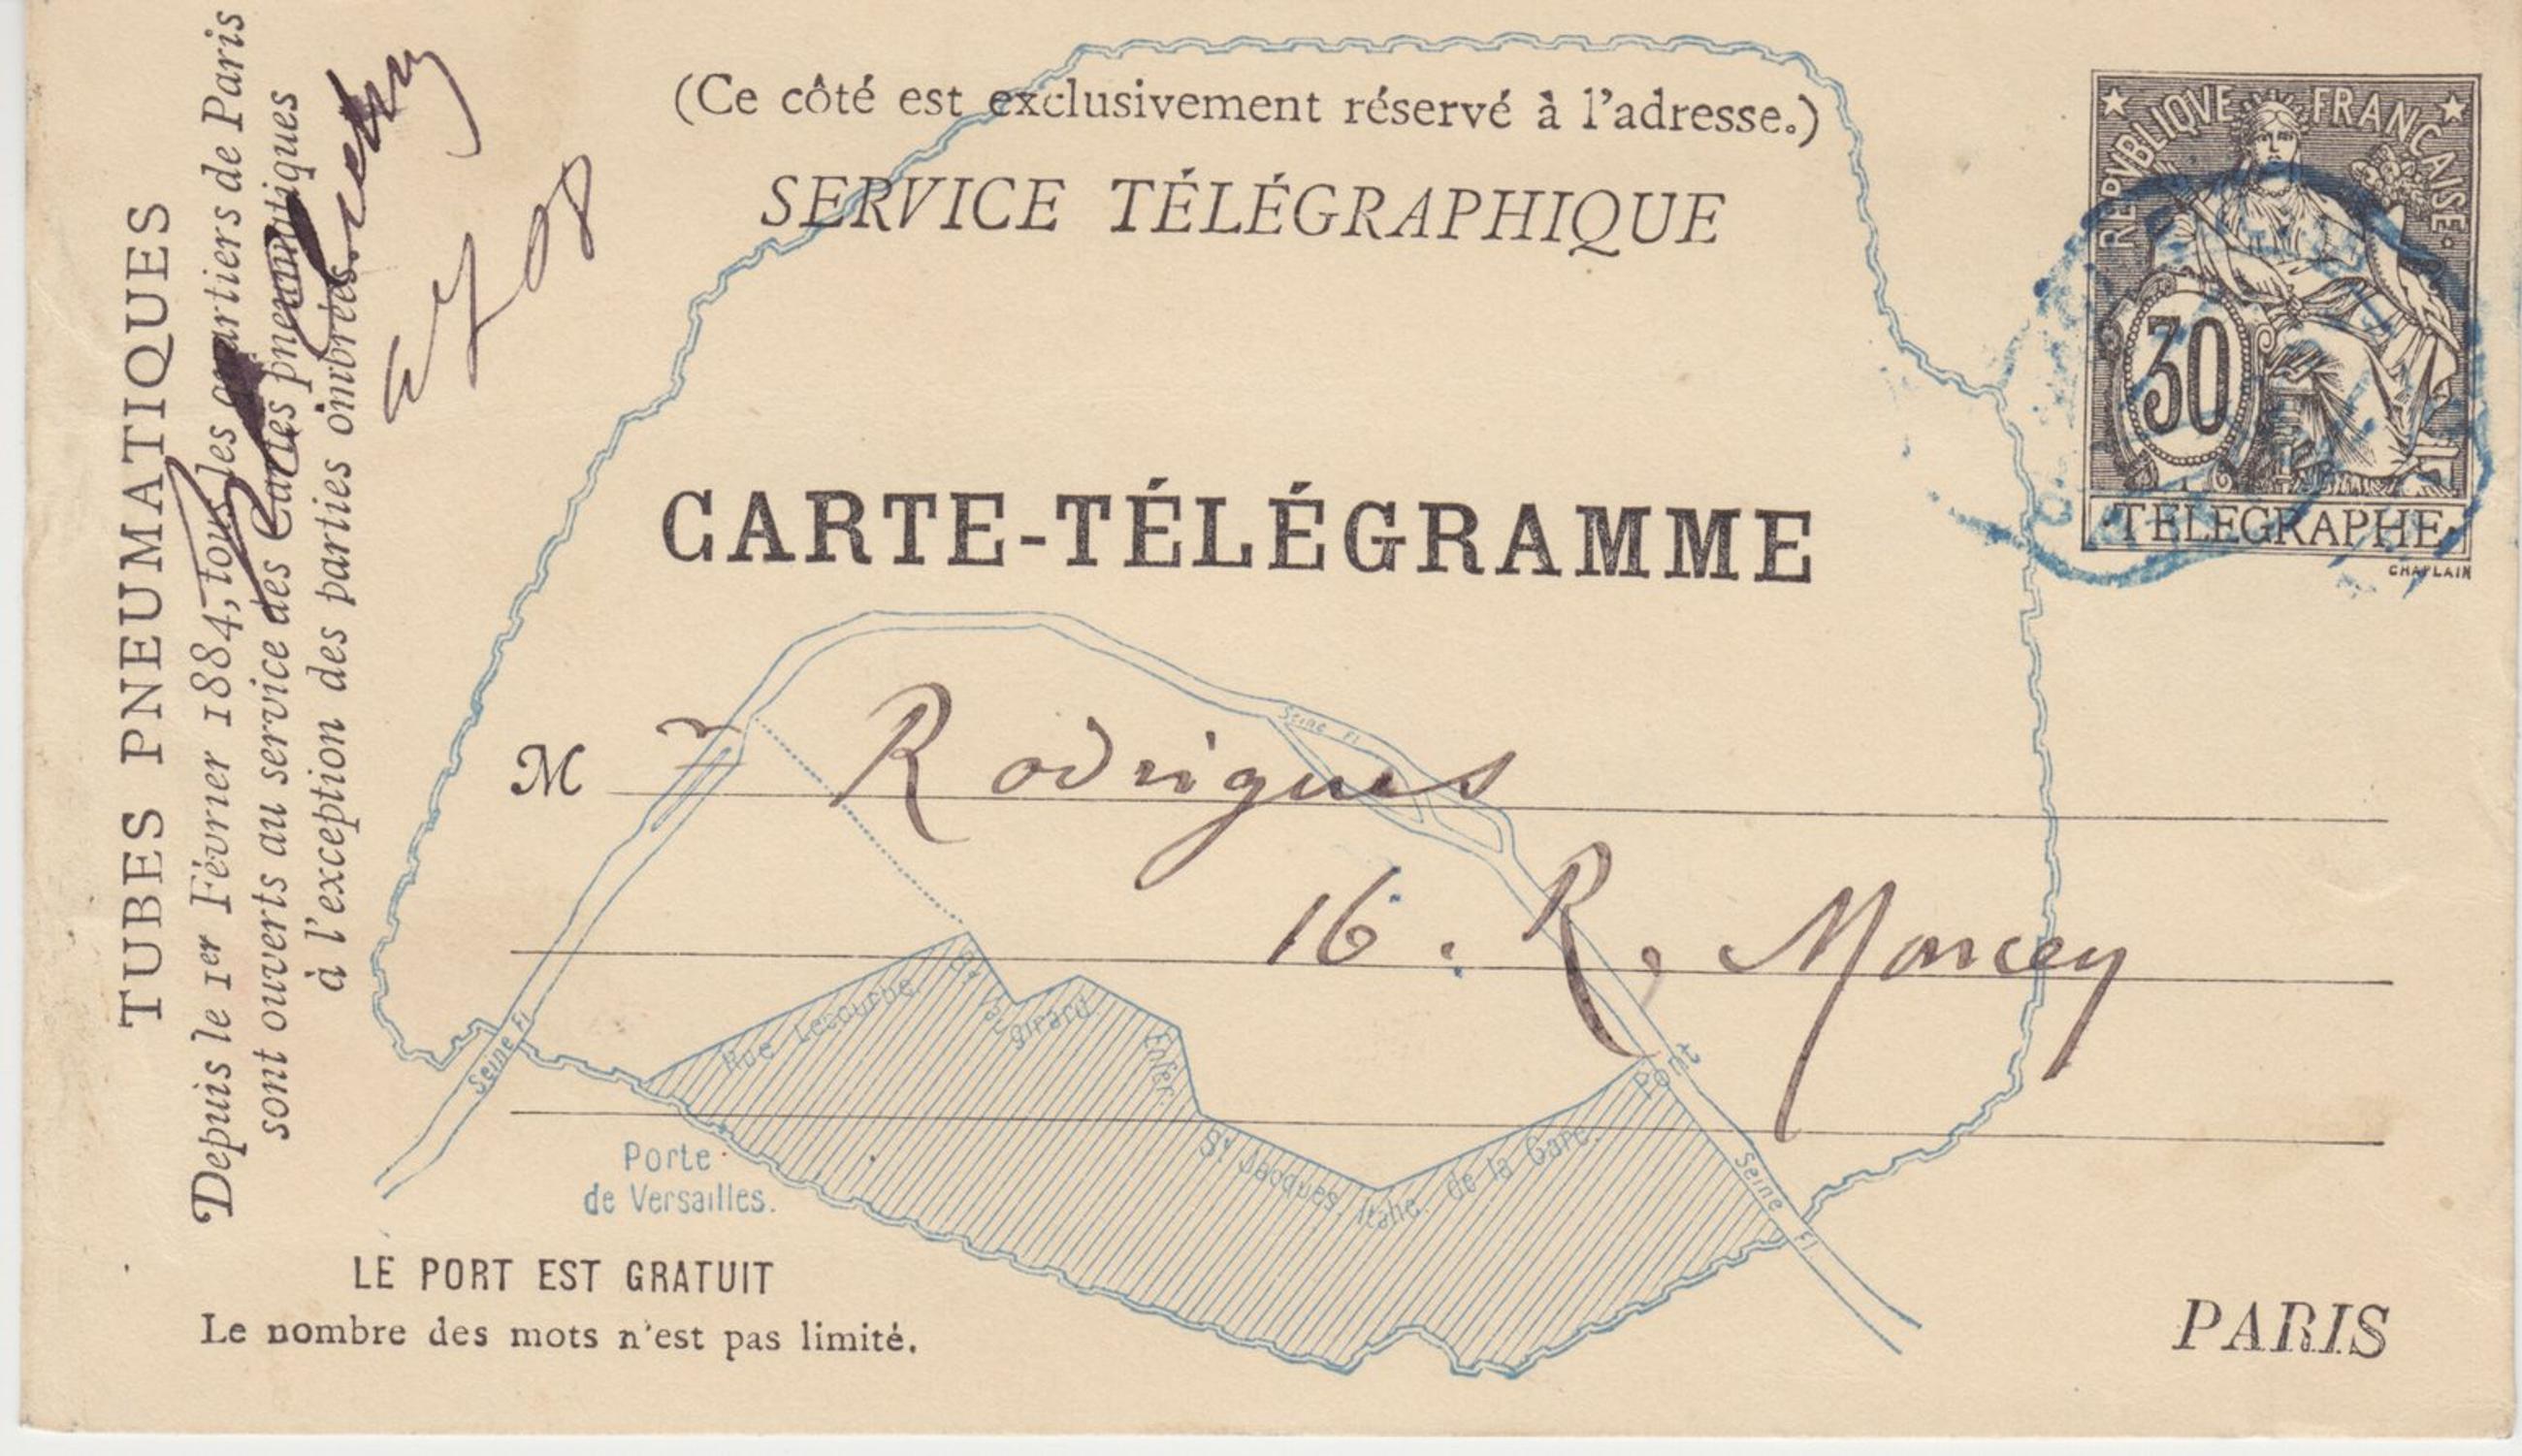 TUBES PNEUMATIQUES
Depuis le 1er Février 1884, tous les quartiers de Paris
sont ouverts au service des Cartes pneumatiques
à l'exception des parties ombrées.
(Ce côté est exclusivement réservé à l'adresse.)
SERVICE TÉLÉGRAPHIQUE
REPVBLIQVE FRANÇAISE.
30
TELEGRAPHE
CHAPLAIN
CARTE-TÉLÉGRAMME
Seine Fl
M r Rodrigues
16. R. Moncey
Rue Lecourbe
Pl. Girard
Enfer
St Jacques
Italie
de la Gare.
Pont
Seine Fl
Seine Fl
Porte
de Versailles.
LE PORT EST GRATUIT
Le nombre des mots n'est pas limité.
PARIS